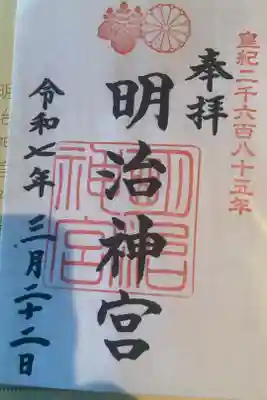 皇紀二千六百八十五年
奉拝
明治神宮
明治神宮
令和七年 三月二十二日